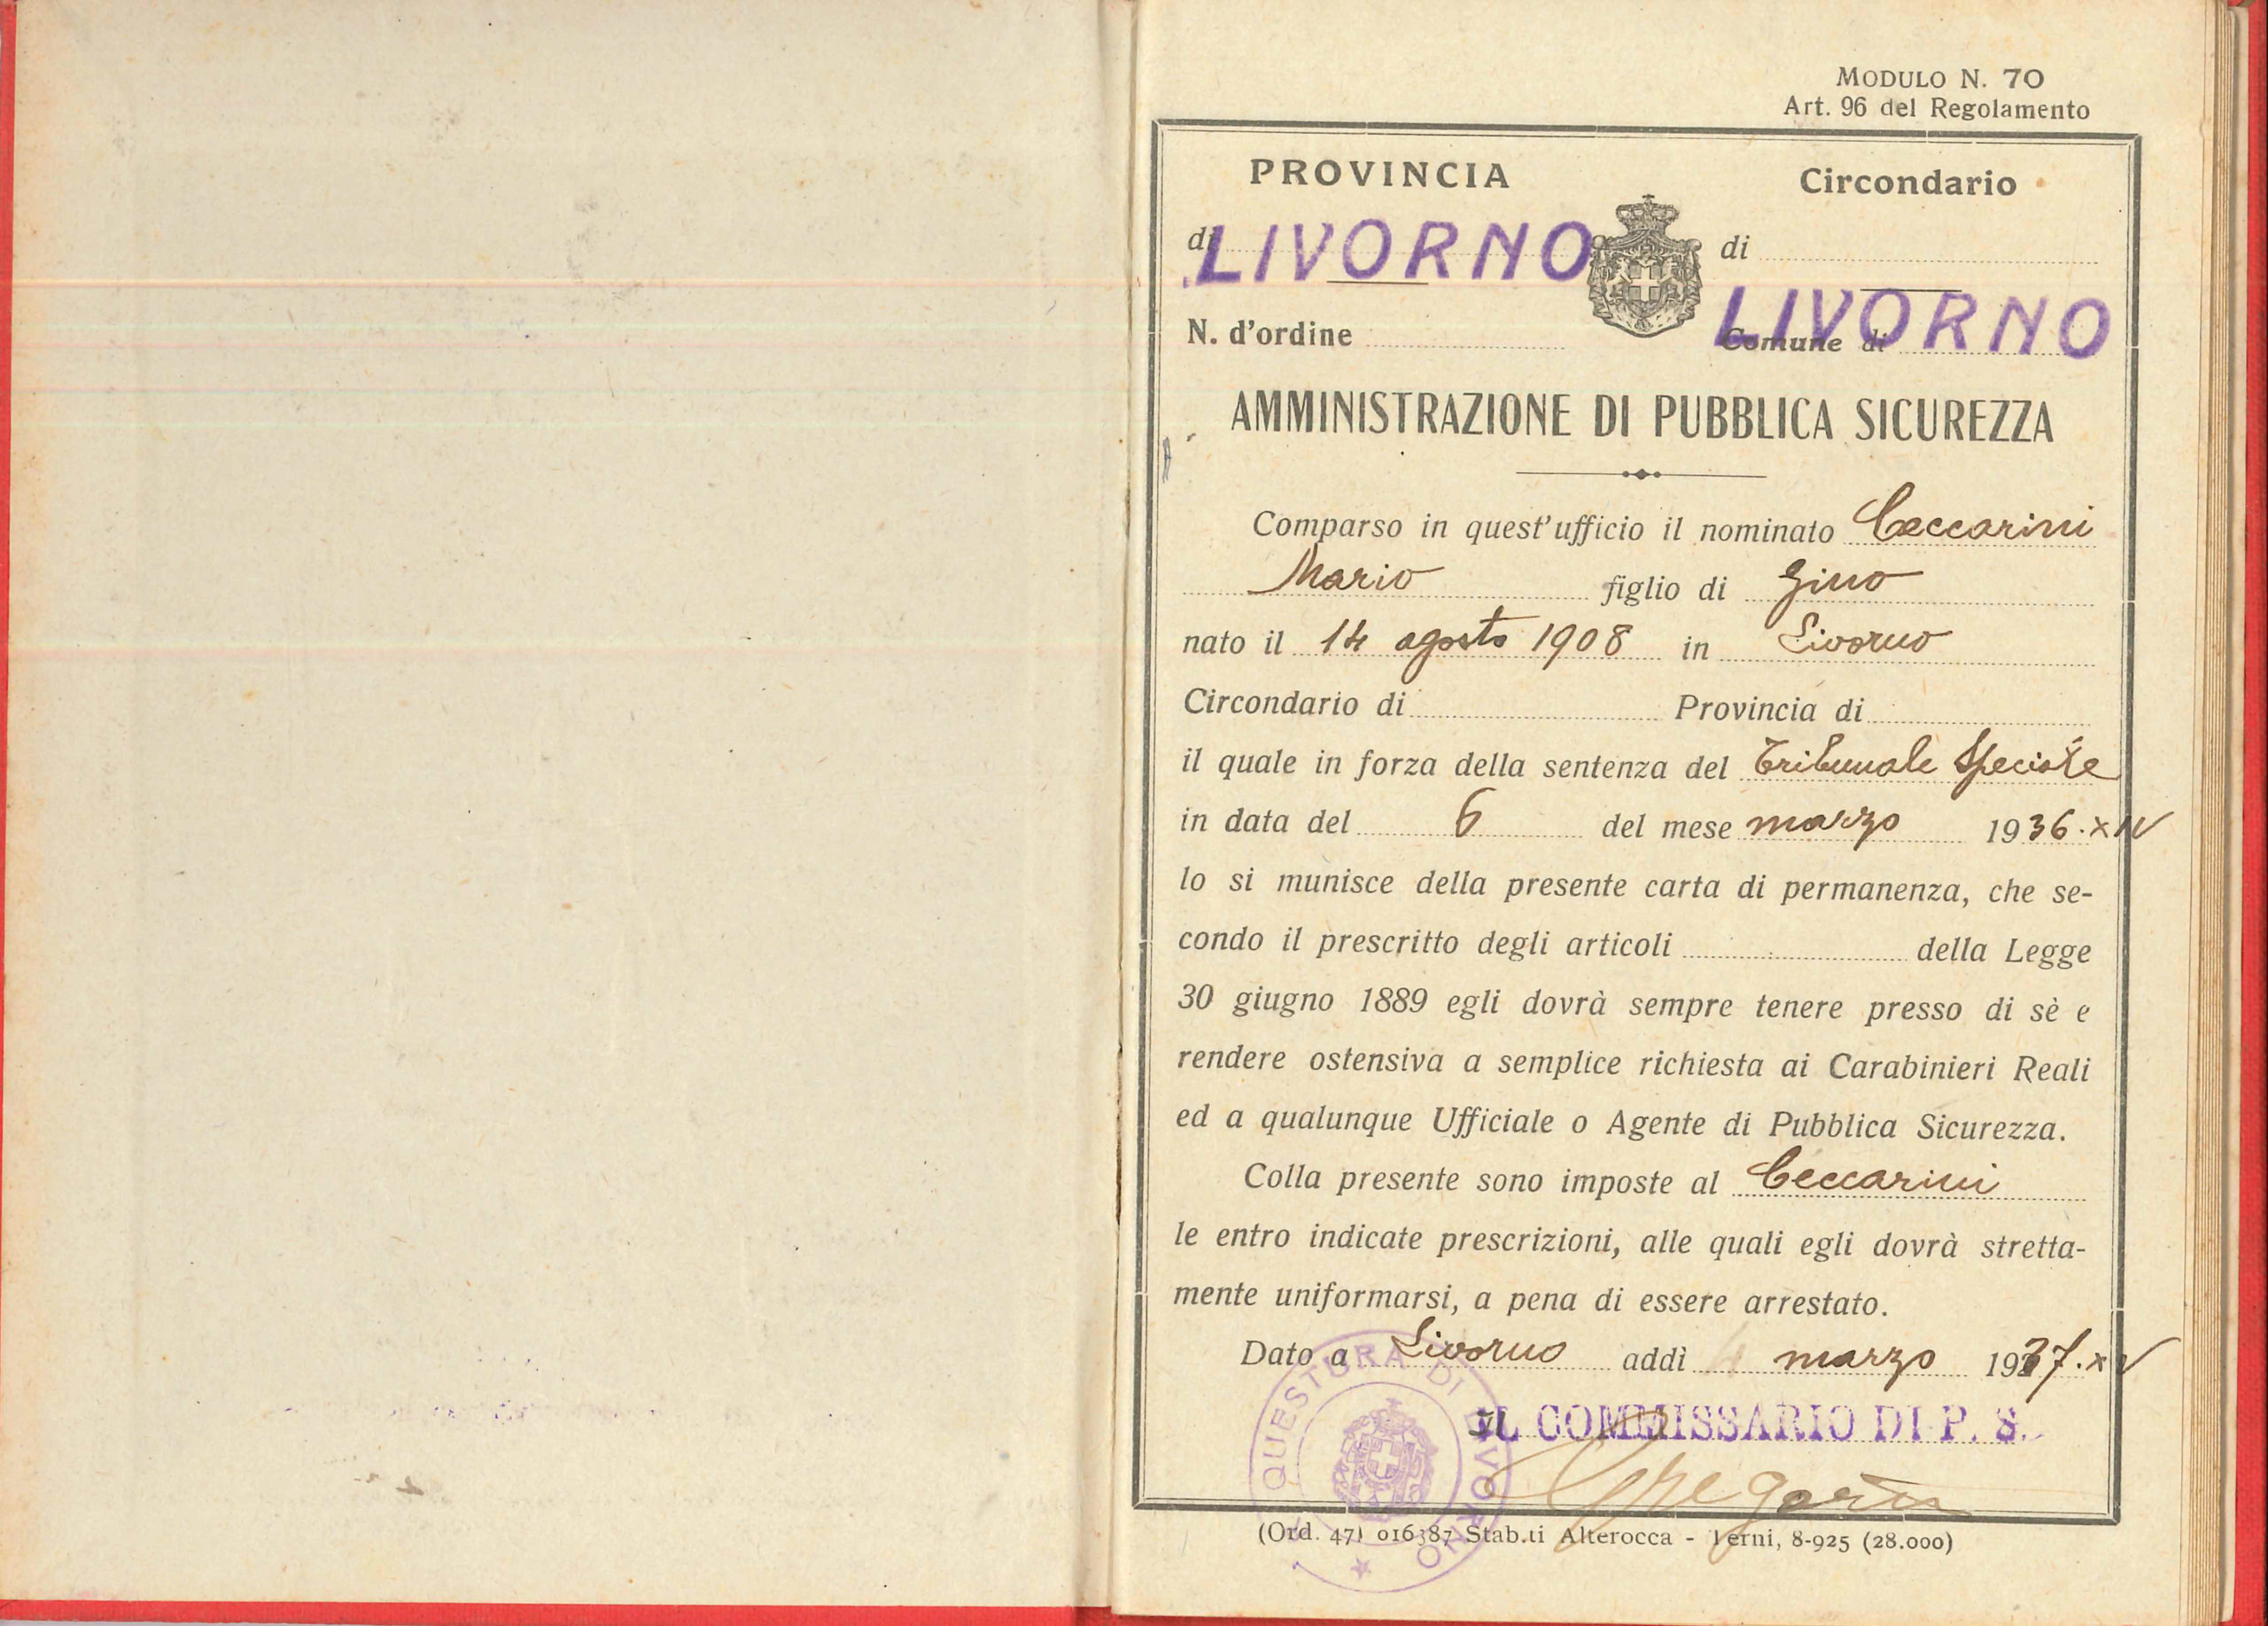 MODULO N. 70
Art. 96 del Regolamento
PROVINCIA
Circondario
di LIVORNO
di
LIVORNO
N. d'ordine
Comune di
AMMINISTRAZIONE DI PUBBLICA SICUREZZA
Comparso in quest'ufficio il nominato Ceccarini
Mario figlio di Gino
nato il 14 agosto 1908 in Livorno
Circondario di Provincia di
il quale in forza della sentenza del Tribunale Speciale
in data del 6 del mese marzo 1936.XIV
lo si munisce della presente carta di permanenza, che se-
condo il prescritto degli articoli della Legge
30 giugno 1889 egli dovrà sempre tenere presso di sè e
rendere ostensiva a semplice richiesta ai Carabinieri Reali
ed a qualunque Ufficiale o Agente di Pubblica Sicurezza.
Colla presente sono imposte al Ceccarini
le entro indicate prescrizioni, alle quali egli dovrà stretta-
mente uniformarsi, a pena di essere arrestato.
Dato a Livorno addì marzo 1937.XV
IL COMMISSARIO DI P. S.
QUESTURA DI LIVORNO
(Ord. 47) 016387 Stab.ti Alterocca - Terni, 8-925 (28.000)